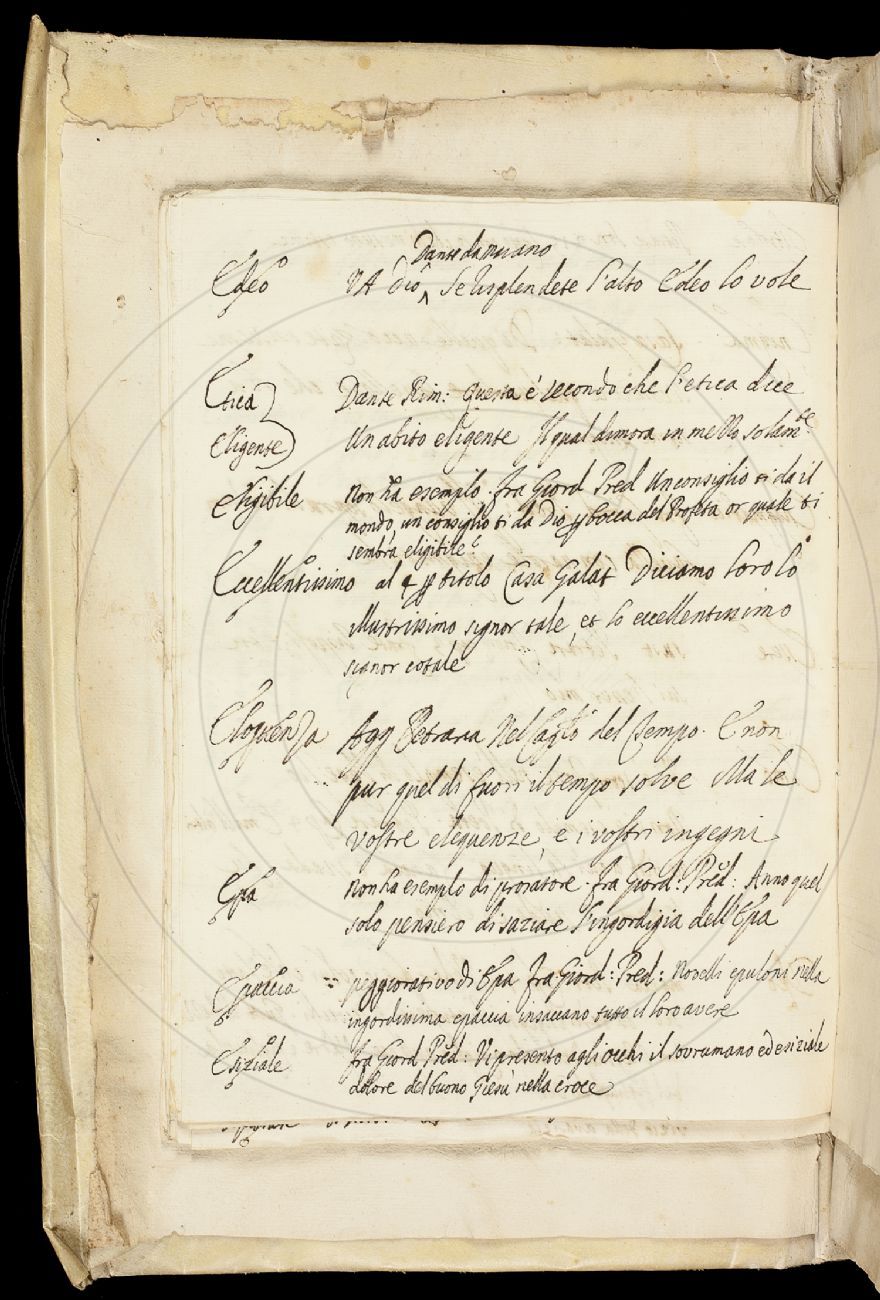 Dante da maiano
Edeo VA Dio ^ Se risplendete l'alto Edeo lo vole
Etica Dante Rim: Questa è secondo che l'etica dice
Eligente Un abito eligente Il qual dimora in mezzo solam.te
Eligibile Non ha esempio. fra Giord Pred Un consiglio ti da il
mondo, un consiglio ti da Dio p bocca del Profeta or quale ti
sembra eligibile
Eccellentissimo al p titolo Casa Galat Diciamo loro lo
illustrissimo signor tale, et lo eccellentissimo
signor cotale
Eloquenza Agg Petrarca Nel del Tempo. E non
pur quel di fuori il tempo solve Ma le
vostre eloquenze, e i vostri ingegni
Epa Non ha esempio di prosatore. fra Giord: Pred: Anno quel
solo pensiero di saziare l'ingordigia dell'Epa
Epaccia peggiorativo di Epa fra Giord: Pred: Novelli epuloni nella
ingordissima epaccia insaccano tutto il loro avere
Esiziale fra Giord Pred: Vi presento agli occhi il sovrumano ed esiziale
dolore del buono Giesù nella croce